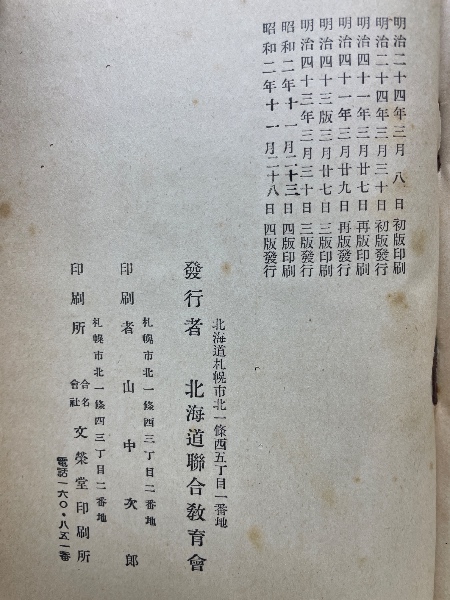 明治二十四年三月 八 日 初版印刷
明治二十四年三月三十日 初版發行
明治四十一年三月廿七日 再版印刷
明治四十一年三月廿九日 再版發行
明治四十三版三月廿七日 三版印刷
明治四十三年三月三十日 三版發行
昭和二年十一月二十三日 四版印刷
昭和二年十一月二十八日 四版發行
北海道札幌市北一條西五丁目一番地
發行者 北海道聯合敎育會
札幌市北一條西三丁目二番地
印刷者 山中次郎
札幌市北一條西三丁目二番地
印刷所 合名會社 文榮堂印刷所
電話一六〇・八五一番